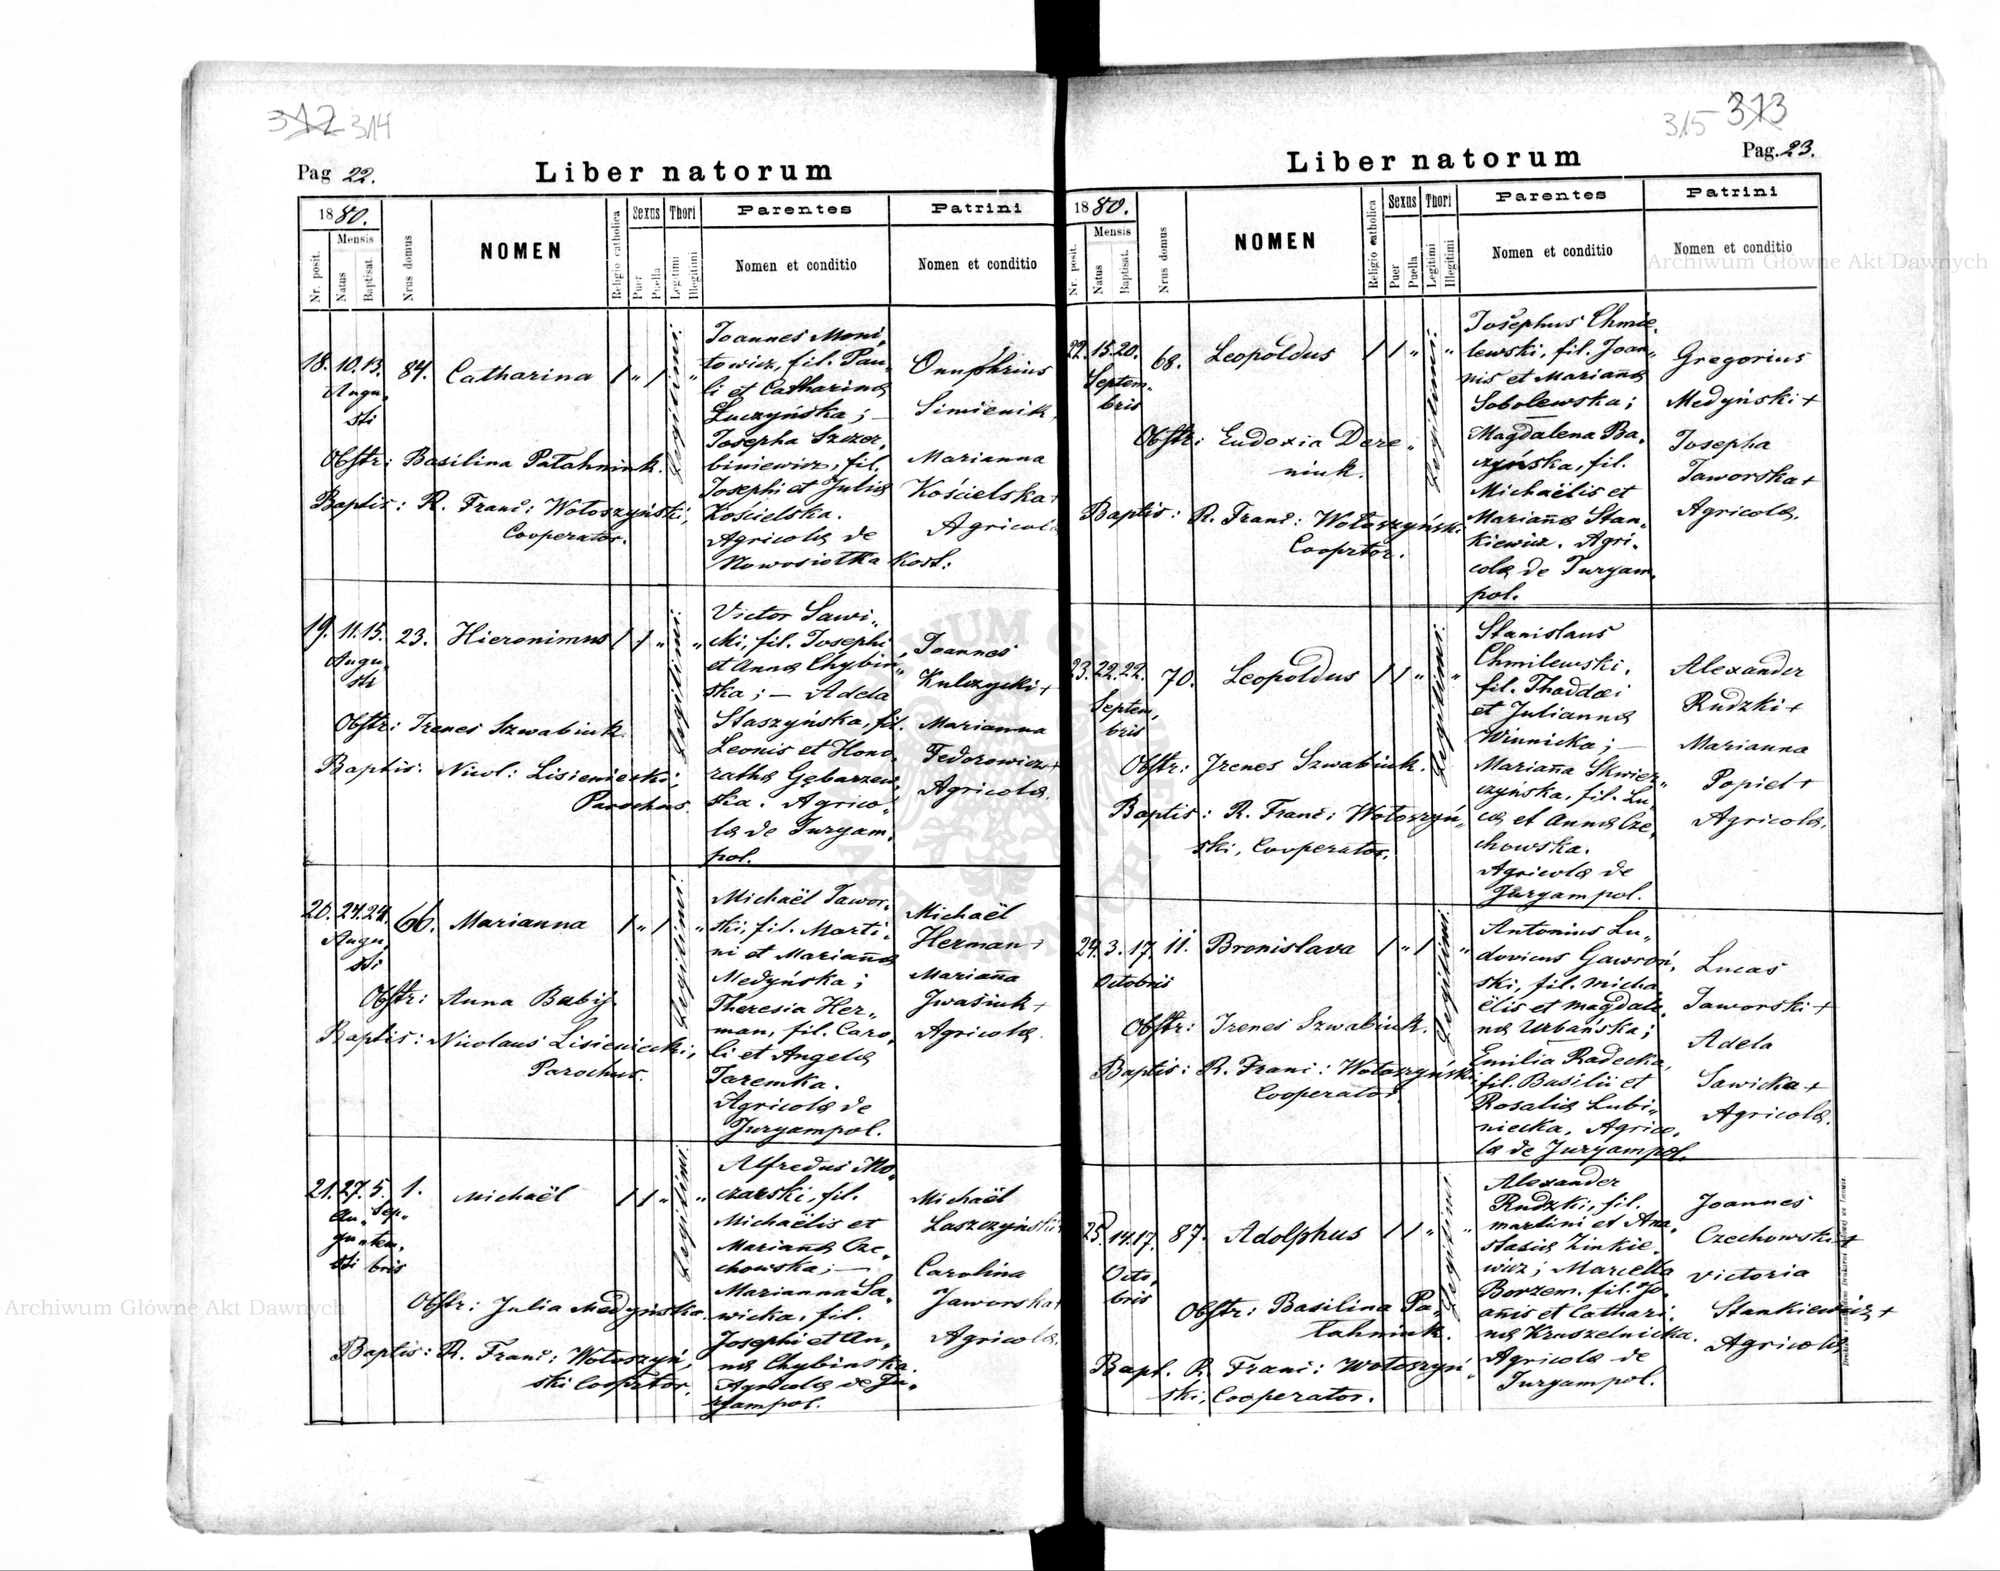 312 314
Pag 22.
Liber natorum
1880.
Nr. posit.
Mensis
Natus
Baptisat.
Nrus domus
NOMEN
Religio catholica
Sexus
Puer
Puella
Thori
Legitimi
Illegitimi
Parentes
Nomen et conditio
Patrini
Nomen et conditio
18. 10. 13. 84. Catharina / " / Legitimi. "
Augu,
sti
Obstr: Basilina Patahniuk.
Baptis: R. Franc: Wołoszyński,
Cooperator.
Joannes Moni,
towicz, fil. Pau,
li et Catharina
Łuczyńska; —
Josepha Szczer,
biniewicz, fil.
Josephi et Julia
Kościelska.
Agricola de
Nowosiołka Kost:
Onuphrius
Simienik
Marianna
Kościelska +
Agricola
19. 11. 15. 23. Hieronimus / / " Legitimi. "
Augu,
sti
Obstr: Irenes Szwabiuk
Baptis: Nicol: Lisieniecki,
Parochus.
Victor Sawi,,
cki, fil. Josephi
et Anna Chybin,,
ska; — Adela
Staszyńska, fil.
Leonis et Hono,
ratha Gębarzew,
ska. Agrico,
la de Juryam,
pol.
Joannes
Kulczycki +
Marianna
Fedorowicz +
Agricola.
20. 24. 24. 66. Marianna / " / Legitimi. "
Augu,
sti
Obstr: Anna Babij.
Baptis: Nicolaus Lisieniecki,
Parochus.
Michaël Jawor,
ski, fil. Marti,
ni et Marianna
Medyńska;
Theresia Her,,
man, fil. Caro,
li et Angela
Jaremka.
Agricola de
Juryampol.
Michaël
Herman +
Marianna
Iwasiuk +
Agricola.
21. 27. 5. 1. Michaël / / " Legitimi. "
Au,, Sep,,
gu,, tem,
sti bris
Obstr: Julia Medyńska.
Baptis: R. Franc: Wołoszyń,
ski Cooprtor.
Alfredus Mo,
czarski, fil.
Michaëlis et
Marianna Cze,
chowska; —
Marianna Sa,
wicka, fil.
Josephi et An,
na Chybinska.
Agricola de Ju,
ryampol.
Michaël
Laszczyński +
Carolina
Jaworska +
Agricola.
315 313
Pag. 23.
Liber natorum
1880.
Nr. posit.
Mensis
Natus
Baptisat.
Nrus domus
NOMEN
Religio catholica
Sexus
Puer
Puella
Thori
Legitimi
Illegitimi
Parentes
Nomen et conditio
Patrini
Nomen et conditio
22. 15. 20. 68. Leopoldus / / " Legitimi. "
Septem,
bris
Obstr: Eudoxia Dere,,
niuk.
Baptis: R. Franc: Wołoszyński
Cooprtor.
Josephus Chmie,
lewski, fil. Joan,,
nis et Marianna
Sobolewska;
Magdalena Ba,
czyńska, fil.
Michaëlis et
Marianna Stan,
kiewicz. Agri,
cola de Juryam,
pol.
Gregorius
Medyński +
Josepha
Jaworska +
Agricola.
23. 22. 22. 70. Leopoldus / / " Legitimi. "
Septem,
bris
Obstr: Irenes Szwabiuk.
Baptis: R. Franc: Wołoszyń,,
ski, Cooperator.
Stanislaus
Chmilewski,
fil. Thaddæi
et Julianna
Winnicka; —
Marianna Skwier,,
czynska, fil. Lu,
ca et Anna Cze,
chowska.
Agricola de
Juryampol.
Alexander
Rudzki +
Marianna
Popiel +
Agricola.
24. 3. 17. 11. Bronislava / " / Legitimi. "
Octobris
Obstr: Irenes Szwabiuk.
Baptis: R. Franc: Wołoszyński,
Cooperator
Antonius Lu,,
dovicus Gawroń,
ski, fil. Micha,
ëlis et Magdale,
na Urbańska;
Emilia Radecka,
fil. Basilii et
Rosalia Lubi,,
niecka, Agrico,
la de Juryampol.
Lucas
Jaworski +
Adela
Sawicka +
Agricola.
25. 14. 17. 87. Adolphus / / " Legitimi. "
Octo,
bris
Obstr: Basilina Pa,
tahniuk.
Bapt. R. Franc: Wołoszyń,
ski, Cooperator.
Alexander
Rudzki, fil.
Martini et Ana,
stasia Zinkie,
wicz; Marcella
Borzem. fil. Jo,
annis et Cathari,
na Kruszelnicka.
Agricola de
Juryampol.
Joannes
Czechowski +
Victoria
Stankiewicz +
Agricola
Archiwum Główne Akt Dawnych
Archiwum Główne Akt Dawnych